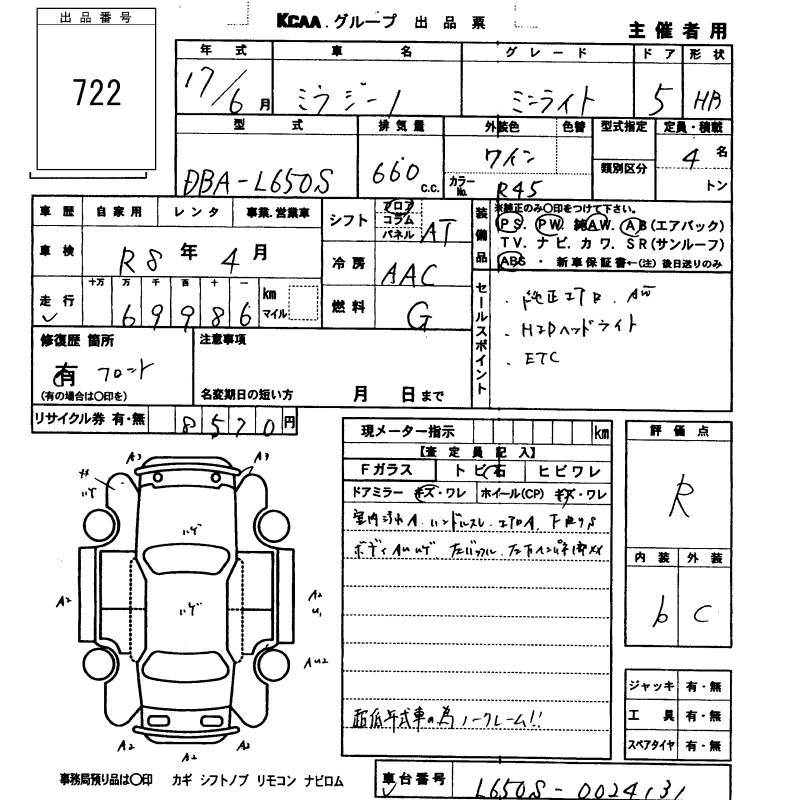 KCAA グループ 出品票
主催者用
出品番号
722
年式 車名 グレード ドア 形状
17/6月 ミラジーノ ミニライト 5 HB
型式 排気量 外装色 色替 型式指定 定員・積載
DBA-L650S 660 c.c. ワイン 類別区分 4名
カラーNo. R45 トン
車歴 自家用 レンタ 事業.営業車
車検 R8年 4月
走行 十万 万 千 百 十 一 km マイル
69986
シフト フロア コラム パネル AT
冷房 AAC
燃料 G
装備品 ※純正のみ〇印をつけて下さい。
PS. PW. 純AW. AB(エアバック)
TV. ナビ. カワ. SR(サンルーフ)
ABS ・ 新車保証書←(注)後日送りのみ
セールスポイント
・純正エアロ . AW
・HIDヘッドライト
・ETC
修復歴 箇所
有 フロント
(有の場合は〇印を)
注意事項
名変期日の短い方 月 日まで
リサイクル券 有・無 8570円
現メーター指示 km
【査定員記入】
Fガラス トビ石 ヒビワレ
ドアミラー キズ・ワレ ホイール(CP) キズ・ワレ
室内汚れA . ハンドルスレ . エアロA . 下廻りS
超低年式車の為ノークレーム!!
評価点
R
内装 外装
b C
ジャッキ 有・無
工具 有・無
スペアタイヤ 有・無
A3 A3
ハゲ ハゲ
ハゲ
A2 A2
U1
AU2
A2 A2
A2
事務局預り品は〇印 カギ シフトノブ リモコン ナビロム
車台番号 L650S-0024131